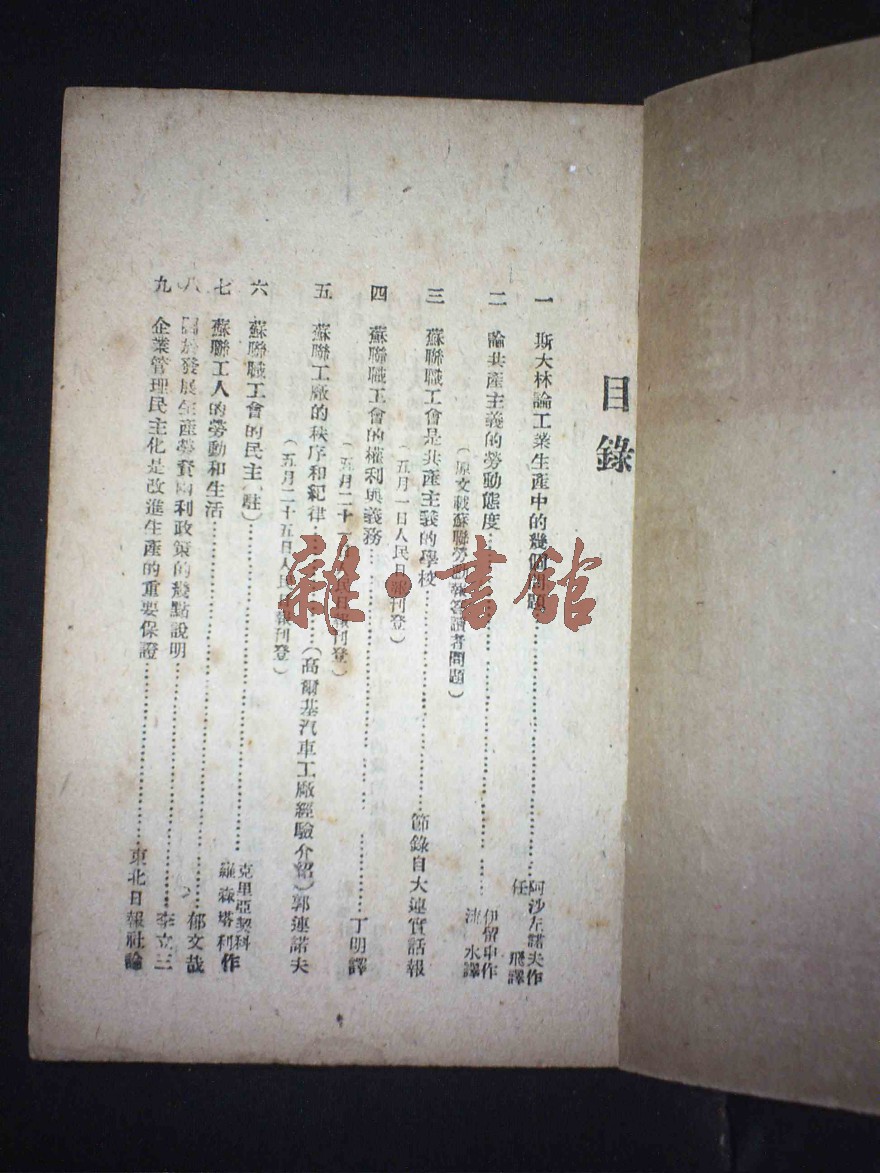 目錄
一 斯大林論工業生產中的幾個問題…………阿沙左諾夫作
任 飛譯
二 論共產主義的勞動態度…………伊留申作
水譯
(原文載蘇聯勞動報答讀者問題)
三 蘇聯職工會是共產主義的學校…………節錄自大連實話報
(五月一日人民日報刊登)
四 蘇聯職工會的權利與義務…………丁明譯
(五月二十一日人民日報刊登)
五 蘇聯工廠的秩序和紀律…………(高爾基汽車工廠經驗介紹)郭連諾夫
(五月二十五日人民日報刊登)
六 蘇聯職工會的民主(註)…………克里亞契科
羅森塔利作
七 蘇聯工人的勞動和生活…………郁文哉
八 關於發展生產勞資兩利政策的幾點說明…………李立三
九 企業管理民主化是改進生產的重要保證…………東北日報社論
雜·書館